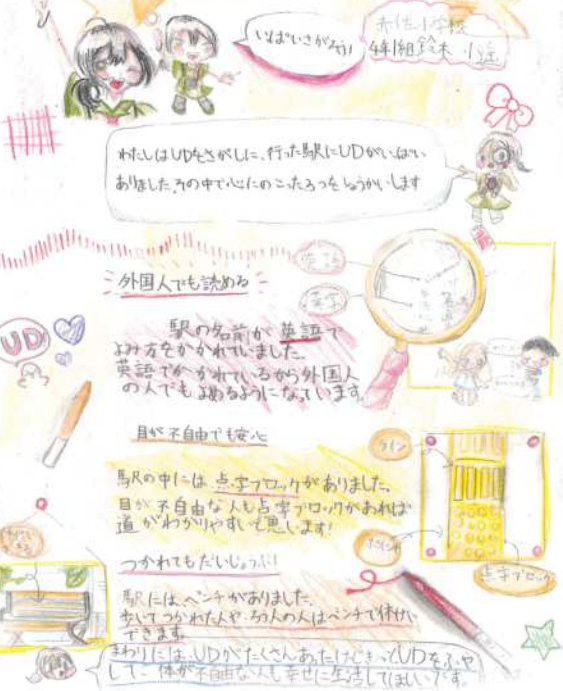 いっぱいさがそう!
赤佐小学校
4年1組鈴木
わたしはUDをさがしに、行った駅にUDがいっぱい
ありました。その中で心にのこった3つをしょうかいします
英語
外国人でも読める
駅の名前が 英語で
よみ方をかかれていました。
英語でかかれているから外国人
の人でもよめるようになっています
UD
目が不自由でも安心
ライン
駅の中には点字ブロックがありました。
目が不自由な人も点字ブロックがあれば
道がわかりやすいと思います!
点字ブロック
つかれてもだいじょうぶ!
駅には、ベンチがありました。
歩いてつかれた人や、ろう人の人はベンチで休けい
できます
まわりには、UDがたくさんあったけどもっとUDをふや
して 体が不自由な人も幸せに生活してほしいです。